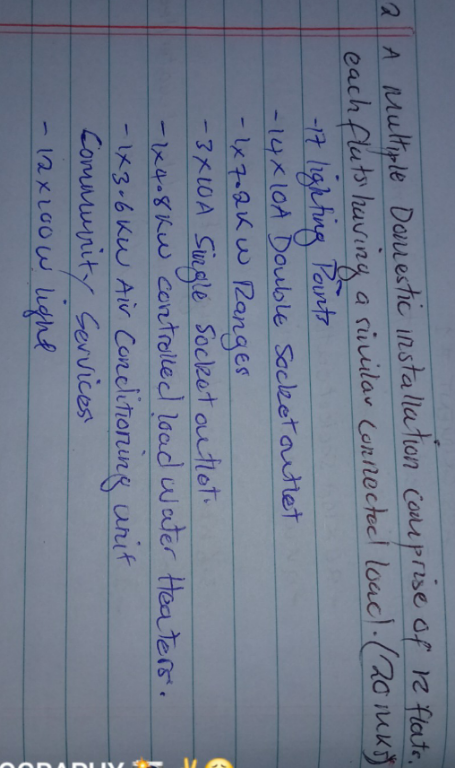 2 A Multiple Domestic installation comprise of 12 flats.
each flats having a similar connected load. (20 mks)
- 17 lighting Points
- 14 x 10A Double Socket outlet
- 1 x 7.2 KW Ranges
- 3 x 10A Single Socket outlet.
- 1 x 4.8 KW controlled load water Heaters.
- 1 x 3.6 KW Air Conditioning unit
Community Services
- 12 x 100 W light